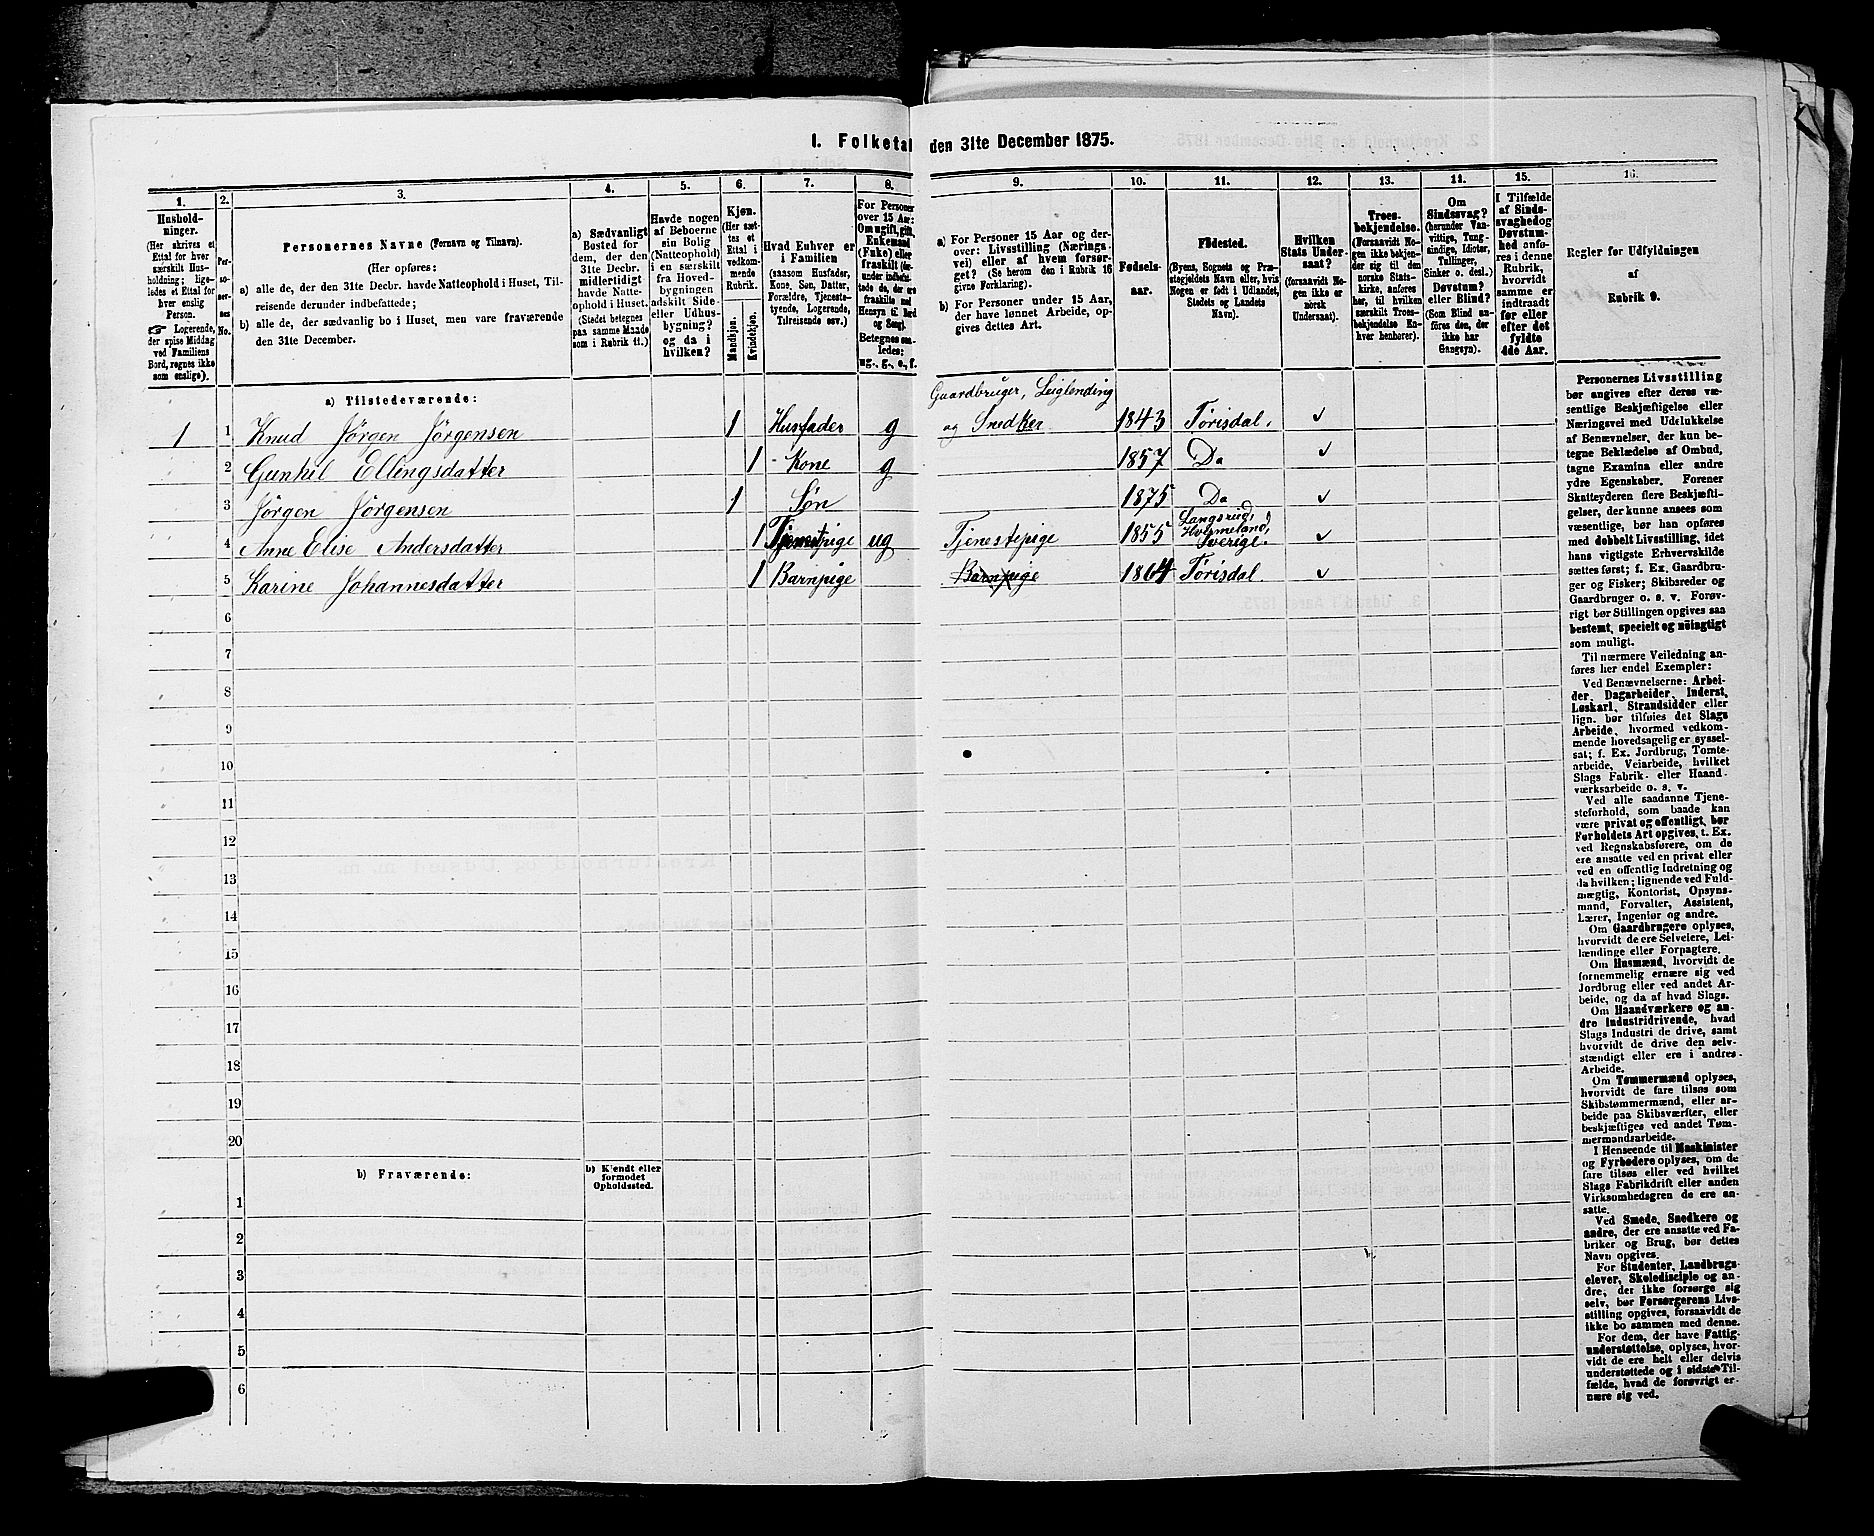 I. Folketal den 31te December 1875.
1. 2. 3. 4. 5. 6. 7. 8. 9. 10. 11. 12. 13. 14. 15. 16.
Hushold-
ninger.
(Her skrives et
Ettal for hver
særskilt Hus-
holdning; lige-
ledes et Ettal for
hver enslig
Person.
☞ Logerende,
der spise Middag
ved Familiens
Bord, regnes ikke
som enslige).
Per-
so-
ner-
nes
No.
Personernes Navne (Fornavn og Tilnavn).
(Her opføres:
a) alle de, der den 31te Decbr. havde Natteophold i Huset, Til-
reisende derunder indbefattede;
b) alle de, der sædvanlig bo i Huset, men vare fraværende
den 31te December.
a) Sædvanligt
Bosted for
dem, der den
31te Decbr.
midlertidigt
havde Natte-
ophold i Huset.
(Stedet betegnes
paa samme Maade
som i Rubrik 11.)
Havde nogen
af Beboerne
sin Bolig
(Natteophold)
i en særskilt
fra Hoved-
bygningen
adskilt Side-
eller Udhus-
bygning?
og da i
hvilken?
Kjøn.
(Her sæt-
tes et
Ettal i
vedkom-
mende
Rubrik.
Mandkjøn.
Kvindekjøn.
Hvad Enhver er
i Familien
(saasom Husfader,
Kone, Søn, Datter,
Forældre, Tjeneste-
tyende, Logerende,
Tilreisende osv.)
For Personer
over 15 Aar:
Om ugift, gift,
Enkemand
(Enke) eller
fraskilt (her-
under indbefat-
tede de, der ere
fraskilte med
Hensyn til Bord
og Seng).
Betegnes saa-
ledes:
ug., g., e., f.
a) For Personer 15 Aar og der-
over: Livsstilling (Nærings-
vei) eller af hvem forsør-
get? (Se herom den i Rubrik 16
givne Forklaring).
b) For Personer under 15 Aar,
der have lønnet Arbeide, op-
gives dettes Art.
Fødsels-
aar.
Fødested.
(Byens, Sognets og Præ-
stegjeldets Navn eller, hvis
Nogen er født i Udlandet,
Stedets og Landets
Navn).
Hvilken
Stats Under-
saat?
(foraavidt No-
gen ikke er
norsk
Undersaat).
Troes-
bekjendelse.
(Forsaavidt No-
gen ikke bekjen-
der sig til den
norske Stats-
kirke, anføres
her, til hvilken
særskilt Troes-
bekjendelse En-
hver henhører).
Om
Sindssvag?
(herunder Van-
vittige, Tung-
sindige, Idioter,
Tullinger,
Sinker o. desl.)
Døvstum?
eller Blind?
(Som Blind an-
føres den, der
ikke har
Gangsyn).
I Tilfælde
af Sinds-
svaghed og
Døvstum-
hed anfø-
res i denne
Rubrik,
hvorvidt
samme er
indtraadt
før eller
efter det
fyldte
4de Aar.
Regler for Udfyldningen
af
Rubrik 9.
a) Tilstedeværende:
Gaardbruger, Leiglending
1 1 Knud Jörgen Jörgensen 1 Husfader g og Snedker 1843 Törisdal. ✓
2 Gunhil Ellingsdatter 1 Kone g 1857 Do ✓
3 Jörgen Jörgensen 1 Søn 1875 Do ✓
4 Anne Elise Andersdatter 1 Tjenestpige ug Tjenestepige 1855 Langsrud, Sverige. ✓
5 Karine Johannesdatter 1 Barnpige Barnpige 1864 Törisdal. ✓
6
7
8
9
10
11
12
13
14
15
16
17
18
19
20
b) Fraværende: b) Kjendt eller
formodet
Opholdssted.
1
2
3
4
5
6
Personernes Livsstilling
bør angives efter deres væ-
sentlige Beskjæftigelse eller
Næringsvei med Udelukkelse
af Benævnelser, der kun be-
tegne Beklædelse af Ombud,
tagne Examina eller andre
ydre Egenskaber. Forener
Skatteyderen flere Beskjæfti-
gelser, der kunne ansees som
væsentlige, bør han opføres
med dobbelt Livsstilling, idet
hans vigtigste Erhvervskilde
sættes først; f. Ex. Gaardbru-
ger og Fisker; Skibsreder og
Gaardbruger o. s. v. Forøv-
rigt bør Stillingen opgives saa
bestemt, specielt og nöiagtigt
som muligt.
Til nærmere Veiledning an-
føres her endel Exempler:
Ved Benævnelserne: Arbei-
der, Dagarbeider, Inderst,
Løskarl, Strandsidder eller
lign. bør tilføies det Slags
Arbeide, hvormed vedkom-
mende hovedsagelig er syssel-
sat; f. Ex. Jordbrug, Tomte-
arbeide, Veiarbeide, hvilket
Slags Fabrik- eller Haand-
værksarbeide o. s. v.
Ved alle saadanne Tjene-
steforhold, som baade kan
være privat og offentligt, bør
Forholdets Art opgives, t. Ex.
ved Regnskabsførere, om de
ere ansatte ved en privat eller
ved en offentlig Indretning og
da hvilken; lignende ved Fuld-
mægtig, Kontorist, Opsyns-
mand, Forvalter, Assistent,
Lærer, Ingeniør og andre.
Om Gaardbrugere oplyses,
hvorvidt de ere Selveiere, Lei-
lændinge eller Forpagtere.
Om Husmænd, hvorvidt de
fornemmelig ernære sig ved
Jordbrug eller ved andet Ar-
beide, og da af hvad Slags.
Om Haandværkere og an-
dre Industridrivende, hvad
Slags Industri de drive, samt
hvorvidt de drive den selv-
stændigt eller ere i andres
Arbeide.
Om Tømmermænd oplyses,
hvorvidt de fare tilsøs som
Skibstømmermænd, eller ar-
beide paa Skibsværfter, eller
beskjæftiges ved andet Tøm-
mermandsarbeide.
I Henseende til Maskinister
og Fyrbødere oplyses, om de
fare tilsøs eller ved hvilket
Slags Fabrikdrift eller anden
Virksomhedsgren de ere an-
satte.
Ved Smede, Snedkere og
andre, der ere ansatte ved Fa-
briker og Brug, bør dettes
Navn opgives.
For Studenter, Landbrugs-
elever, Skoledisciple og an-
dre, der ikke forsørge sig
selv, bør Forsørgerens Livs-
stilling opgives, forsaavidt de
ikke bo sammen med denne.
For dem, der have Fattig-
understøttelse, oplyses, hvor-
vidt de ere helt eller delvis
understøttede og i sidste Til-
fælde, hvad de forøvrigt er-
nære sig ved.